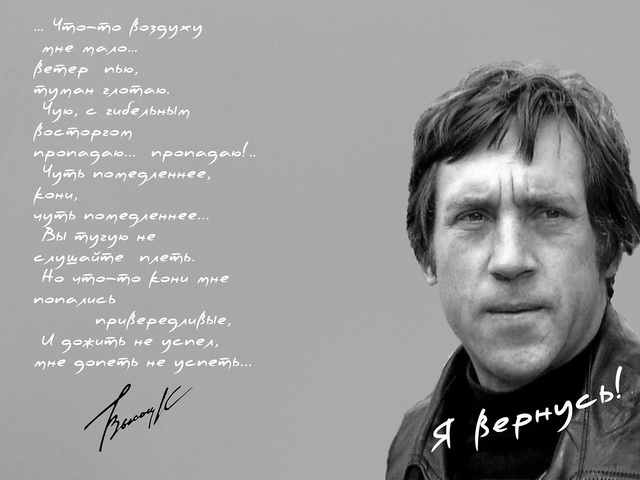 ... Что-то воздуху
мне мало...
ветер пью,
туман глотаю.
Чую, с гибельным
восторгом
пропадаю... пропадаю!..
Чуть помедленнее,
кони,
чуть помедленнее...
Вы тугую не
слушайте плеть.
Но что-то кони мне
попались
привередливые,
И дожить не успел,
мне допеть не успеть...
Высоц
Я вернусь!